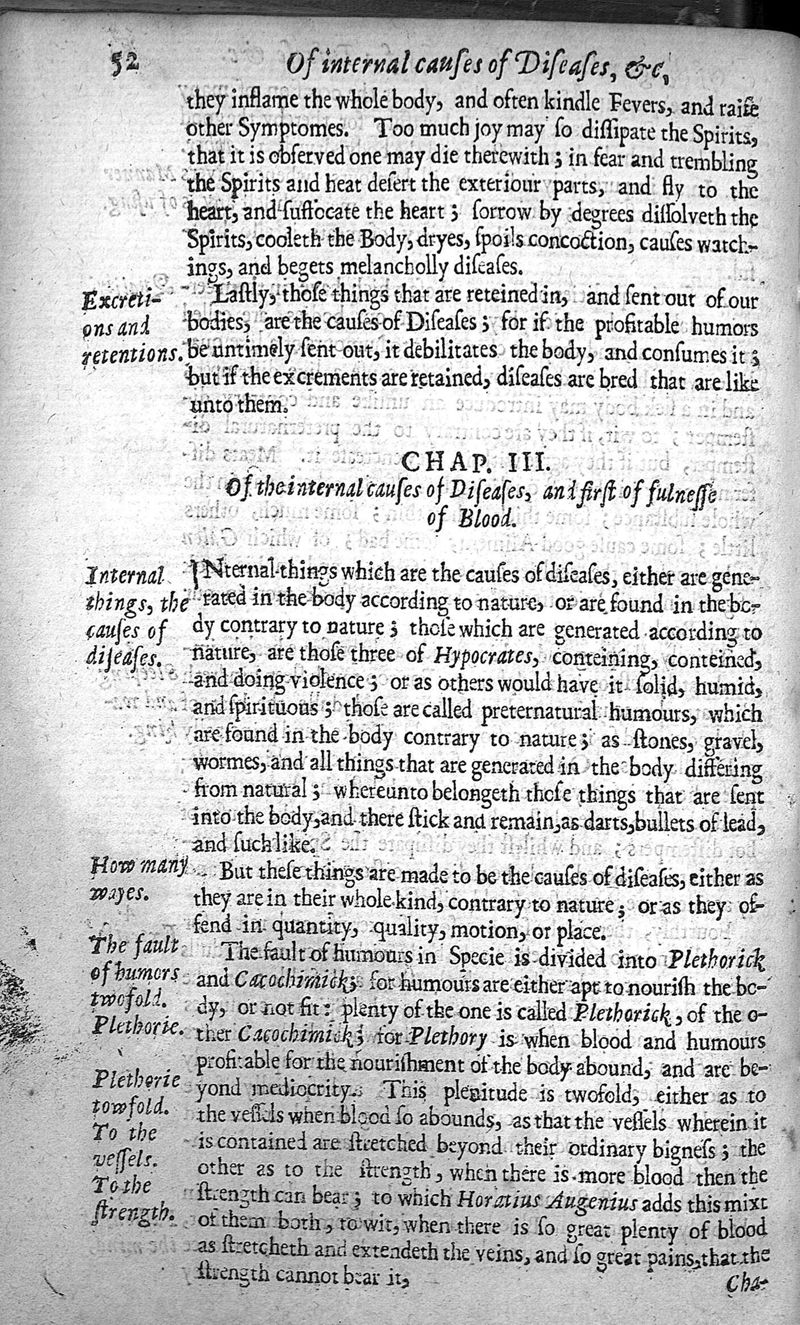 52 Of internal cauſes of Diſeaſes, &c,
they inflame the whole body, and often kindle Fevers, and raiſe
other Symptomes. Too much joy may ſo diſſipate the Spirits,
that it is obſerved one may die therewith ; in fear and trembling
the Spirits and heat deſert the exteriour parts, and fly to the
heart, and ſuffocate the heart ; ſorrow by degrees diſſolveth the
Spirits, cooleth the Body, dryes, ſpoils concoction, cauſes watch-
ings, and begets melancholly diſeaſes.
Excreti-
ons and
retentions.
Laſtly, thoſe things that are reteined in, and ſent out of our
bodies, are the cauſes of Diſeaſes ; for if the profitable humors
be untimely ſent out, it debilitates the body, and conſumes it ;
but if the excrements are retained, diſeaſes are bred that are like
unto them.
CHAP. III.
Of the internal cauſes of Diſeaſes, and firſt of fulneſſe
of Blood.
Internal
things, the
cauſes of
diſeaſes.
INternal things which are the cauſes of diſeaſes, either are gene-
rated in the body according to nature, or are found in the bo-
dy contrary to nature ; thoſe which are generated according to
nature, are thoſe three of Hypocrates, conteining, conteined,
and doing violence ; or as others would have it ſolid, humid,
and ſpirituous ; thoſe are called preternatural humours, which
are found in the body contrary to nature ; as ſtones, gravel,
wormes, and all things that are generated in the body differing
from natural ; whereunto belongeth thoſe things that are ſent
into the body, and there ſtick and remain, as darts, bullets of lead,
and ſuch like.
How many
wayes.
But theſe things are made to be the cauſes of diſeaſes, either as
they are in their whole kind, contrary to nature ; or as they of-
fend in quantity, quality, motion, or place.
The fault
of humors
twofold.
Plethorie.
The fault of humours in Specie is divided into Plethorick
and Cacochimick ; for humours are either apt to nouriſh the bo-
dy, or not fit : plenty of the one is called Plethorick, of the o-
ther Cacochimick ; for Plethory is when blood and humours
profitable for the nouriſhment of the body abound, and are be-
Plethorie
towfold.
To the
veſſels.
To the
ſtrength.
yond mediocrity. This plenitude is twofold, either as to
the veſſels when blood ſo abounds, as that the veſſels wherein it
is contained are ſtretched beyond their ordinary bigneſs ; the
other as to the ſtrength, when there is more blood then the
ſtrength can bear ; to which Horatius Augenius adds this mixt
of them both, to wit, when there is ſo great plenty of blood
as ſtretcheth and extendeth the veins, and ſo great pains, that the
ſtrength cannot bear it,
Cha-